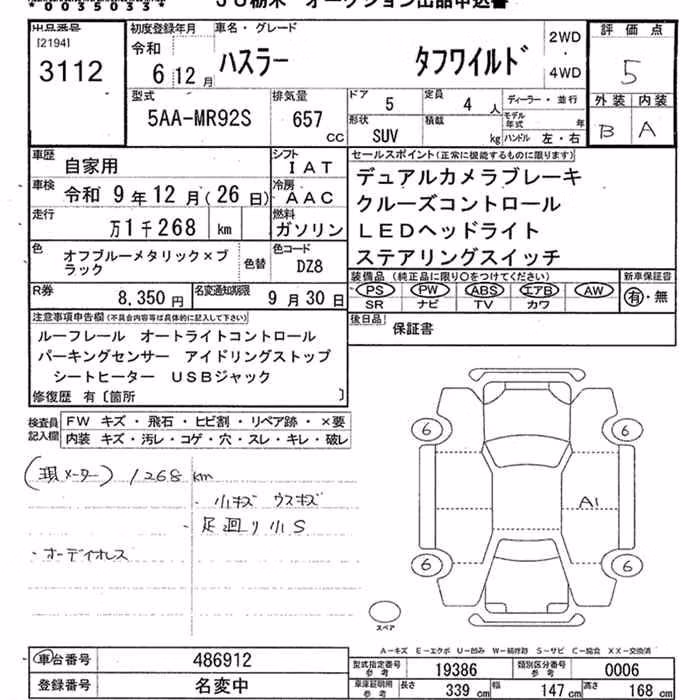 *0035033*
JU栃木 オークション出品申込書
出品番号
[2194]
3112
初度登録年月
令和
6年12月
車名・グレード
ハスラー タフワイルド
2WD
・
4WD
評価点
5
外装 内装
B A
型式
5AA-MR92S
排気量
657
cc
ドア
5
定員
4人
ディーラー・並行
形状
SUV
積載
kg
モデル年式
年
ハンドル 左・右
車歴
自家用
シフト
IAT
車検
令和 9年12月(26日)
冷房
AAC
走行
万1千268 km
燃料
ガソリン
色
オフブルーメタリック×ブラック
色替
色コード
DZ8
R券
8,350円
名変通知期限
9月30日
セールスポイント(正常に機能するものに限ります)
デュアルカメラブレーキ
クルーズコントロール
LEDヘッドライト
ステアリングスイッチ
装備品(純正品に限り○をつけてください)
PS PW ABS エアB AW
SR ナビ TV カワ
新車保証書
有・無
後日品
保証書
注意事項申告欄(不具合内容等は具体的に記入して下さい)
ルーフレール オートライトコントロール
パーキングセンサー アイドリングストップ
シートヒーター USBジャック
修復歴 有〔箇所 〕
検査員記入欄
FW キズ・飛石・ヒビ割・リペア跡・×要
内装 キズ・汚レ・コゲ・穴・スレ・キレ・破レ
(現メーター) 1268 km
・小キズ ウスキズ
・足廻り小S
・オーディオレス
6
6
A1
6
6
スペア
A-キズ E-エクボ U-凹み W-補修跡 S-サビ C-腐食 XX-交換済
車台番号
486912
登録番号
名変中
型式指定番号
参考
19386
類別区分番号
参考
0006
車庫証明用
参考
長さ 339 cm
幅 147 cm
高さ 168 cm